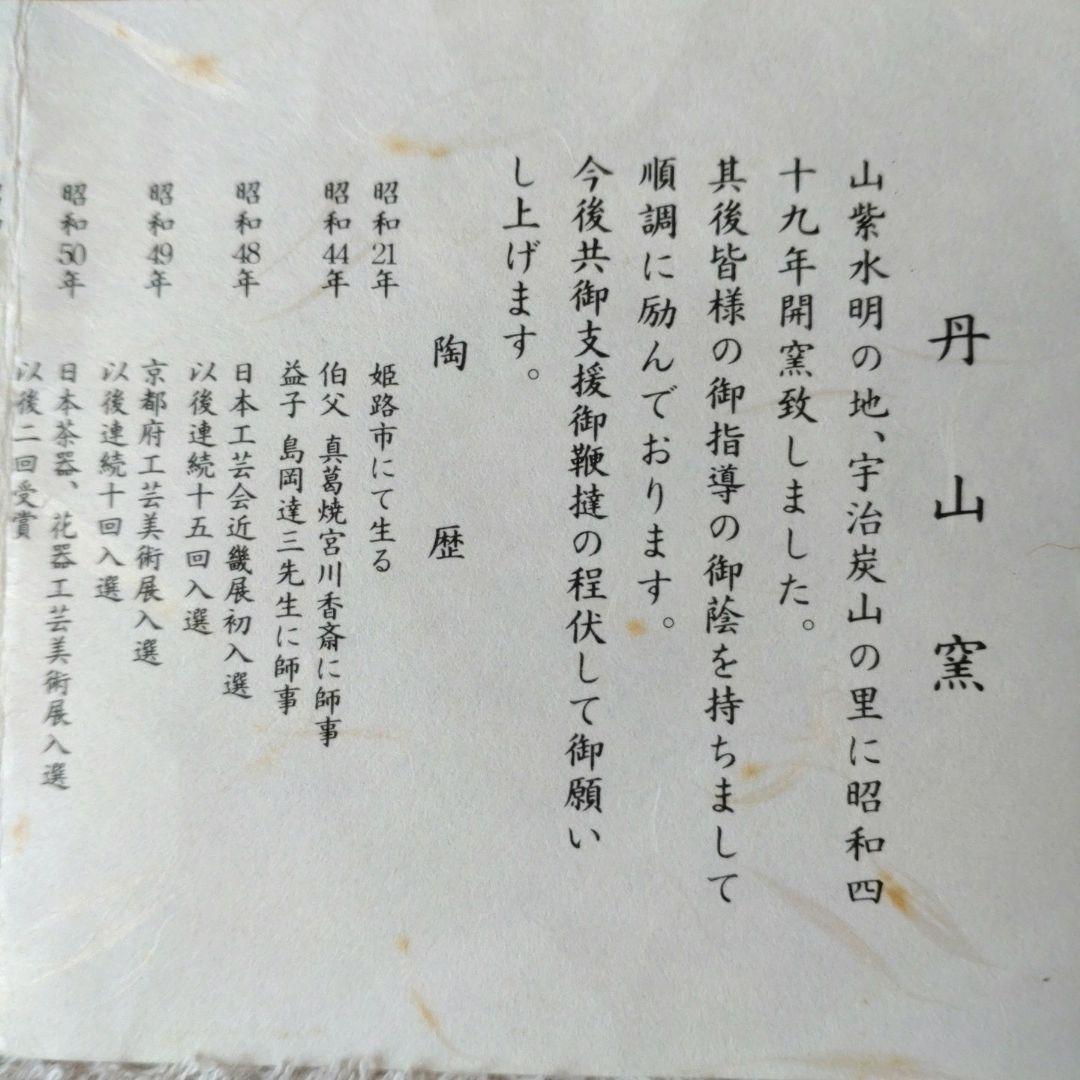 丹山窯
山紫水明の地、宇治炭山の里に昭和四
十九年開窯致しました。
其後皆様の御指導の御蔭を持ちまして
順調に励んでおります。
今後共御支援御鞭撻の程伏して御願い
し上げます。
陶歴
昭和21年 姫路市にて生る
昭和44年 伯父 真葛焼宮川香斎に師事
益子 島岡達三先生に師事
昭和48年 日本工芸会近畿展初入選
以後連続十五回入選
昭和49年 京都府工芸美術展入選
以後連続十回入選
昭和50年 日本茶器、花器工芸美術展入選
以後二回受賞